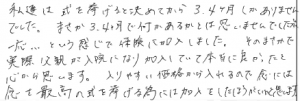 私達は式を挙げると決めてから3.4ヶ月しかありません
でした。まさか3.4ヶ月で何かあるとは思いませんでしたが
一応…という感じで保険に加入しました。そのまさかで
実際父親が入院になり加入していて本当に良かったと
心から思います。入りやすい価格から入れるので応には
応を最高の式を挙げる為には加入としたほうがいいと思います